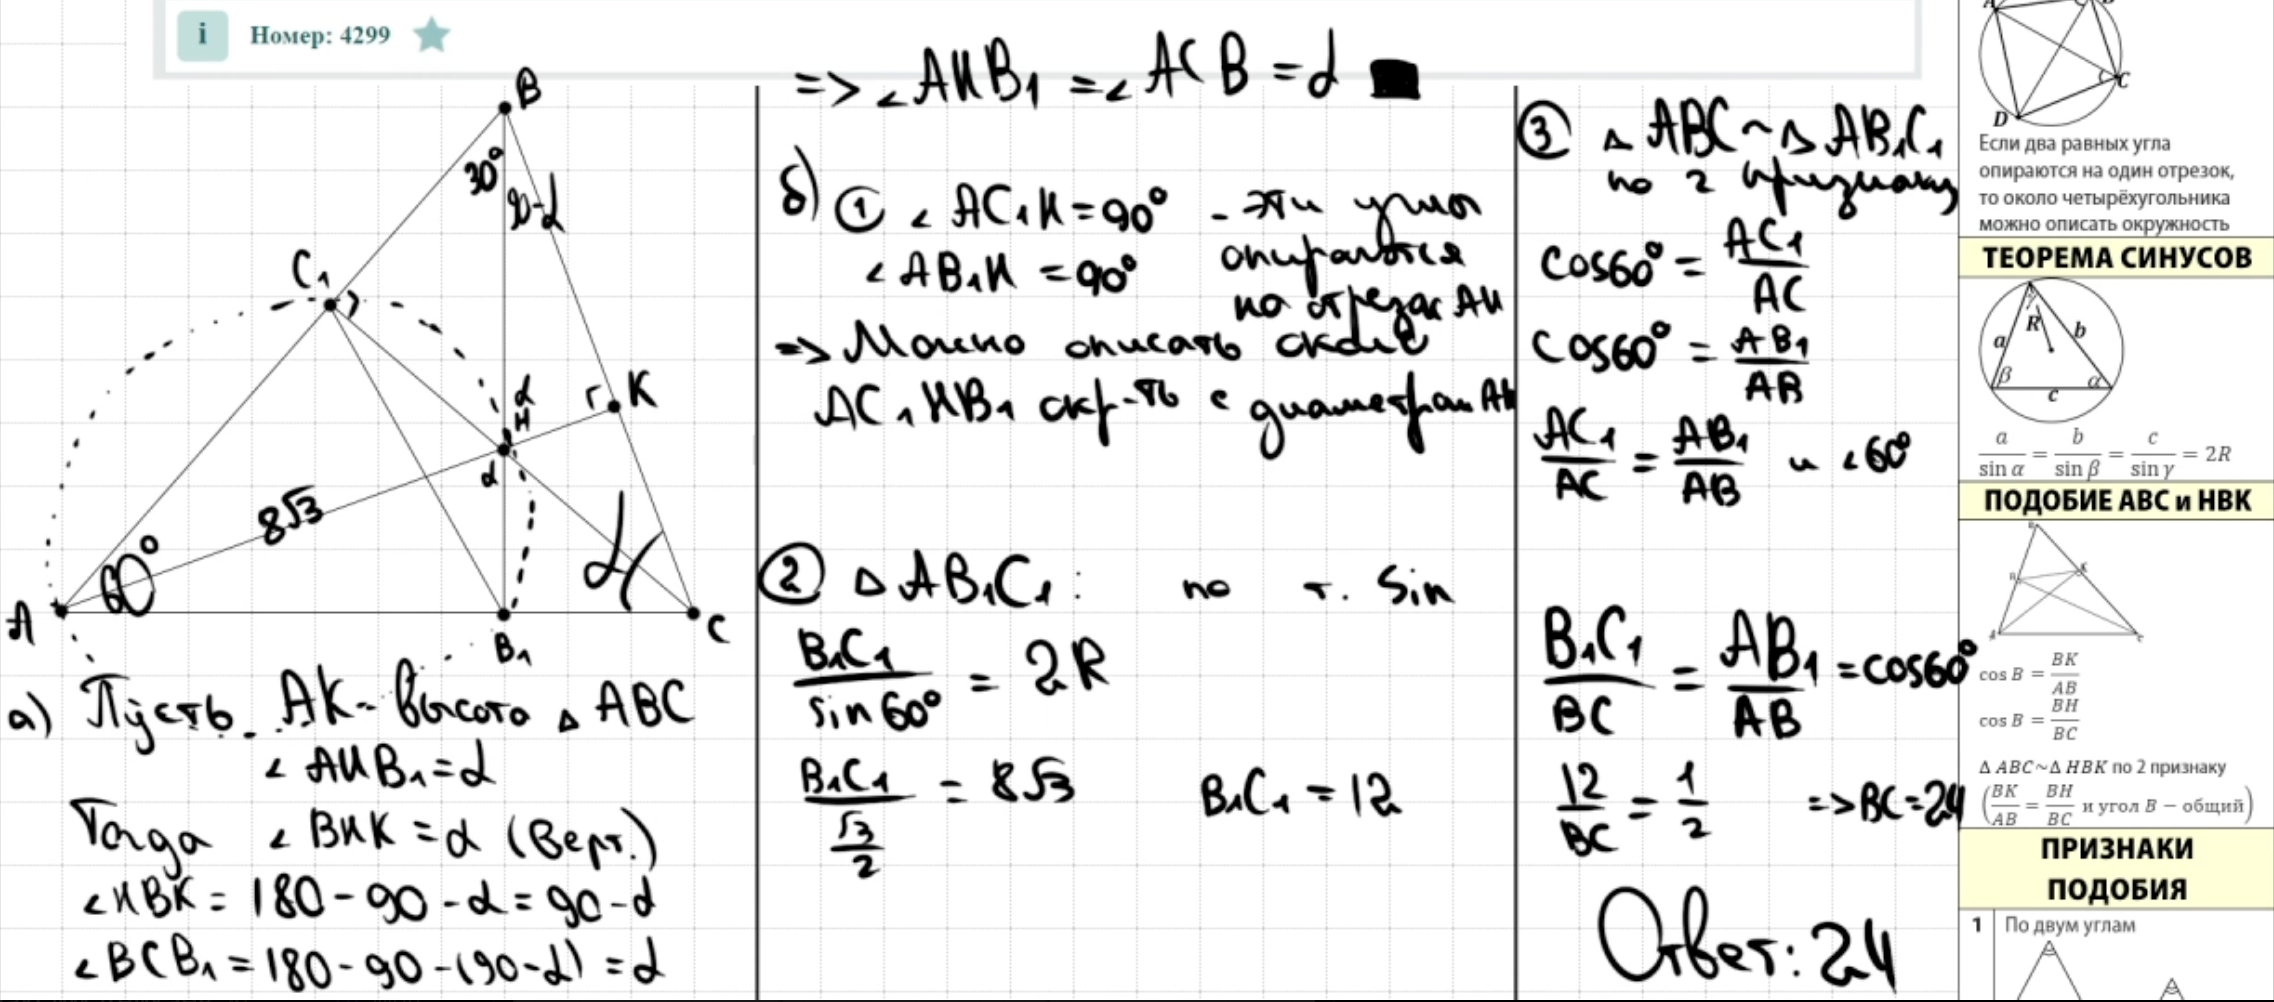 i Номер: 4299
B
30°
90-α
C₁
α
H
K
α
8√3
60°
α
A
B₁
C
а) Пусть AK - высота △ ABC
∠ AHB₁ = α
Тогда ∠ BHK = α (верт.)
∠HBK = 180 - 90 - α = 90 - α
∠BCB₁ = 180 - 90 - (90 - α) = α
=> ∠AHB₁ = ∠ACB = α ■
б) ① ∠ AC₁H = 90° - эти углы
∠ AB₁H = 90° опираются
на отрезок AH
=> Можно описать около
AC₁HB₁ окр-ть с диаметром AH
② △ AB₁C₁: по т. sin
B₁C₁ / sin 60° = 2R
B₁C₁ / (√3 / 2) = 8√3 B₁C₁ = 12
③ △ ABC ~ △ AB₁C₁
по 2 признаку
cos60° = AC₁ / AC
cos60° = AB₁ / AB
AC₁ / AC = AB₁ / AB и ∠60°
B₁C₁ / BC = AB₁ / AB = cos60°
12 / BC = 1 / 2 => BC = 24
Ответ: 24
A B
C
D
Если два равных угла
опираются на один отрезок,
то около четырёхугольника
можно описать окружность
ТЕОРЕМА СИНУСОВ
γ
R
a b
β α
c
a / sin α = b / sin β = c / sin γ = 2R
ПОДОБИЕ ABC и HBK
B
H K
A C
cos B = BK / AB
cos B = BH / BC
Δ ABC~Δ HBK по 2 признаку
(BK / AB = BH / BC и угол B − общий)
ПРИЗНАКИ
ПОДОБИЯ
1 По двум углам